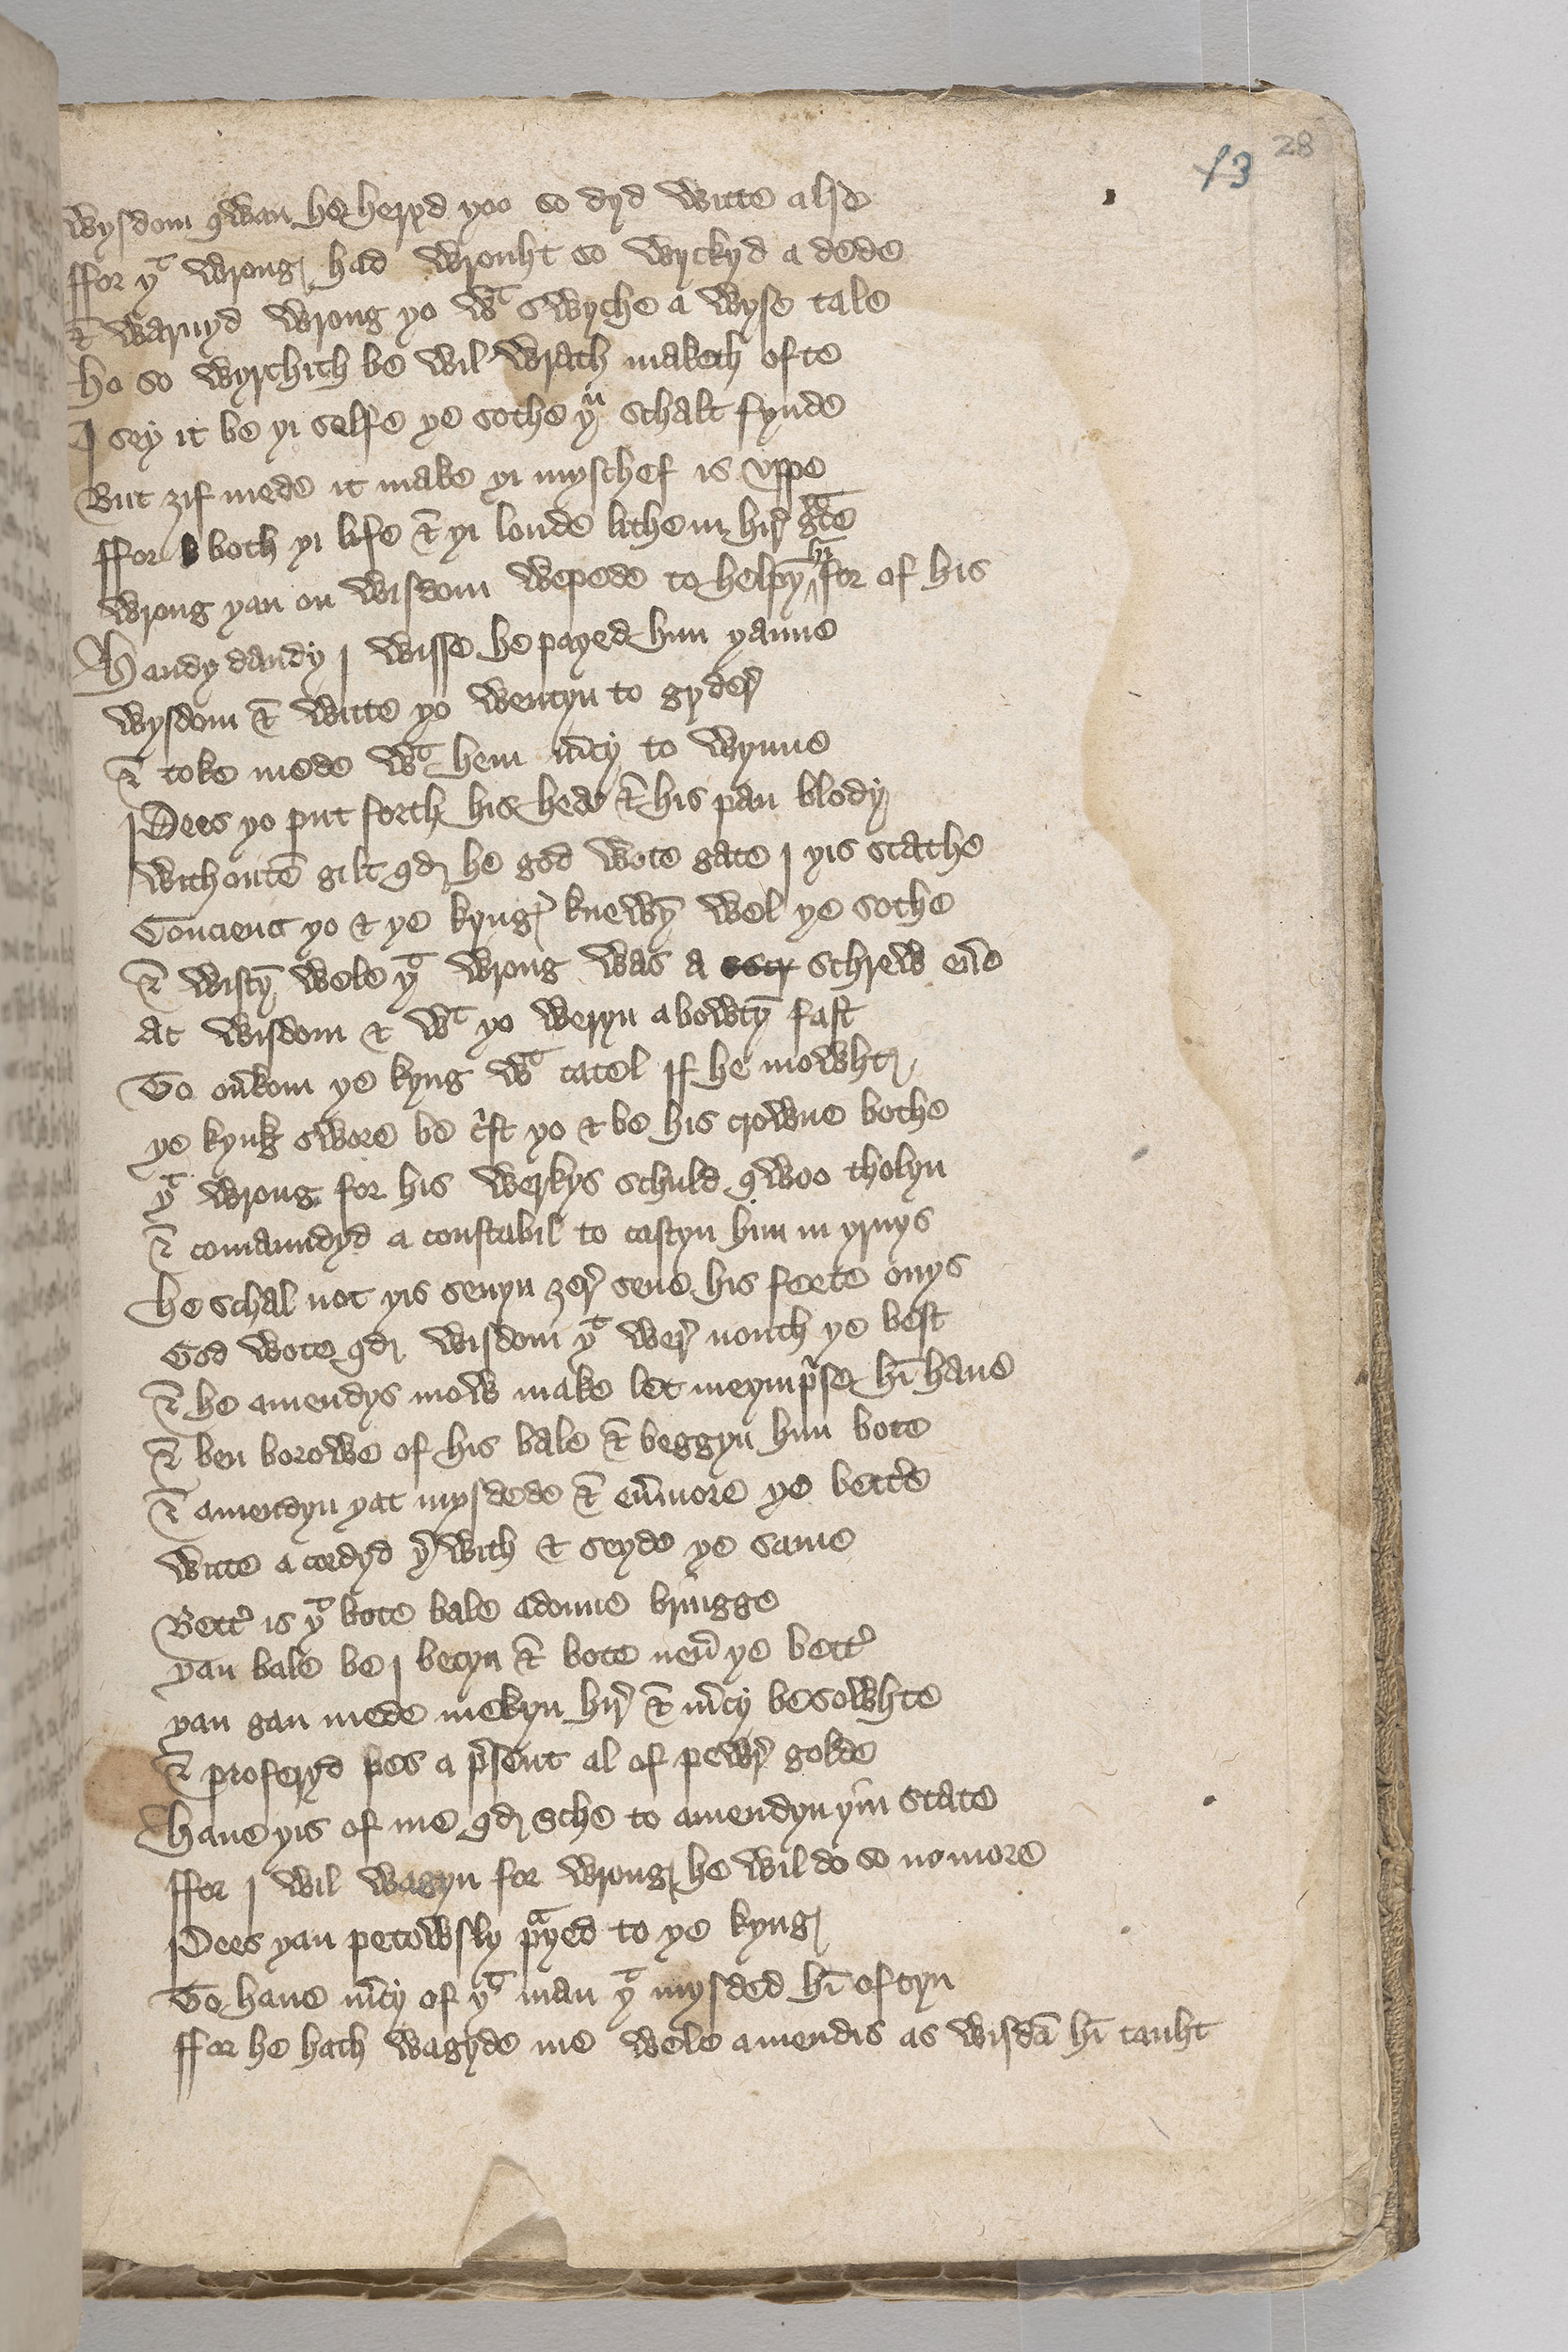 13 28
Wysdom qwan he heryd yoo so dyd witte also
ffor yᵗ wrong had wrouht so wyckyd a dede
& warnyd wrong yo wᵗ swyche a wyse tale
ho so wyrchith be wil wrath maketh ofte
I sey it be yi selfe ye sothe yᵘ schalt fynde
But ȝif mede it make yi myschef is vppe
ffor both yi life & yi londe lithe in hir gᵃce
Wrong yan on wisdom wepede to helpȳ hī for of his
Handy dandy I wisse he payed hym yanne
Wysdom & witte yo wentyn to gyder
& toke mede wᵗ hem m̄cy to wynne
Pees yo put forth his hed & his pan blody
Withoutē gilt qd he god wote gate I yis scathe
Concienc yo & ye kyng knewȳ wel ye sothe
& wistȳ wele yᵗ wrong was a schrew eū̄e
At wisdom & wᵗ yo weryn abowtȳ fast
To oūkom ye kyng wᵗ catel if he mowht
ye kynk swore be c̄st yo & be his crowne bothe
yᵗ wrong for his werkys schuld qwoo tholyn
& comaundyd a constabil to castyn him in yrnys
he schal not yis seuyn ȝer sene his feete onys
God wote qd wisdom yᵗ wer nouth ye best
& he amendys mow make let meymp̄se hī haue
& ben borowe of his bale & beggyn him bote
& amendyn yat mysdede & eū̄more ye bett̄e
Witte acordyd ȳ with & seyde ye same
Bett̄ is yᵗ bote bale adonne bringge
yan bale be I betyn & bote neū ye bett̄
yan gan mede mekyn hir & m̄cy besowhte
& proferyd pes a p̄sent al of pewr golde
Haue yis of me qd sche to amendyn yin state
ffor I wil wagyn for wrong he wil do so nomore
Pees yan petowsly pᵃyed to ye kyng
To haue m̄cy of yᵗ man yᵗ mysded hī oftyn
ffor he hath wagyde me wele amendis as wisdā hī tauht